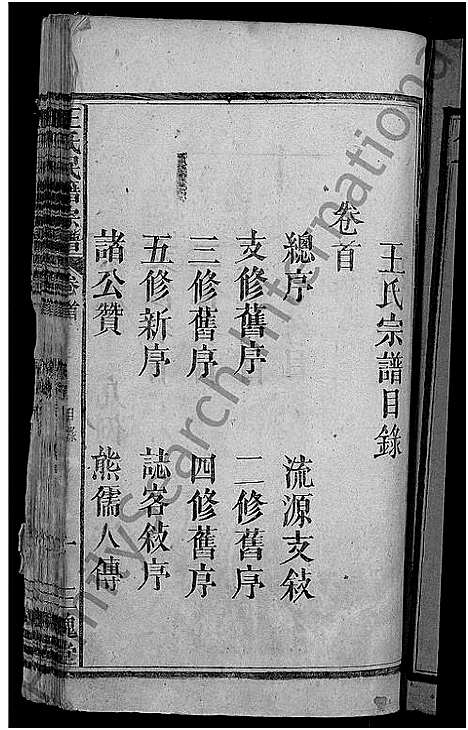 王氏宗譜目錄
卷首
總序 流源支敍
支修舊序 二修舊序
三修舊序 四修舊序
五修新序 誌客敍序
諸公贊 熊儒人傳
王氏宗譜 卷首 目錄 一 三槐堂